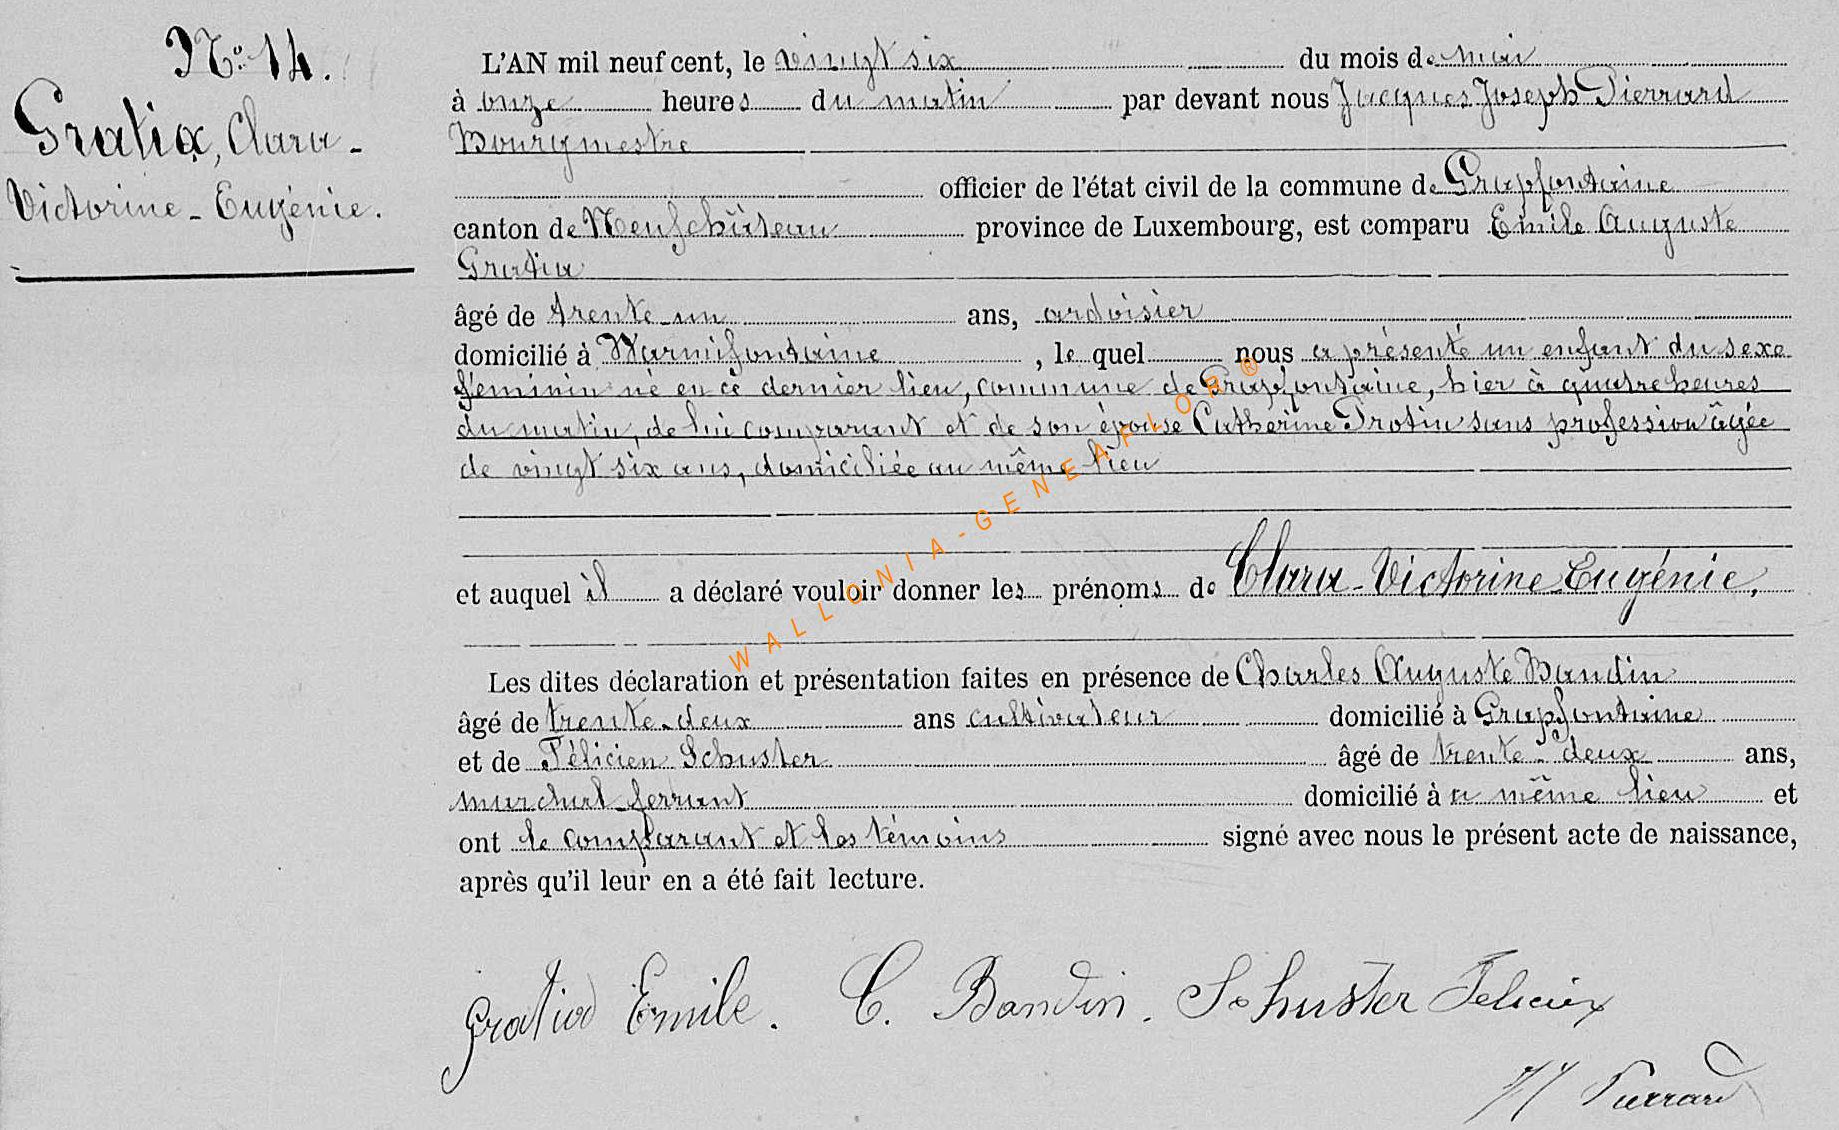 N° 14.
Gratia, Clara-
Victorine-Eugénie.
L'AN mil neuf cent, le vingt six du mois de mai
à onze heures du matin par devant nous Jacques Joseph Pierrard
Bourgmestre
officier de l'état civil de la commune de Grapfontaine
canton de Neufchâteau province de Luxembourg, est comparu Emile Auguste
Gratia
âgé de trente-un ans, ardoisier
domicilié à Warmifontaine, le quel nous a présenté un enfant du sexe
féminin né en ce dernier lieu, commune de Grapfontaine, hier à quatre heures
du matin, de lui comparant et de son épouse Catherine Protin sans profession âgée
de vingt six ans, domiciliée au même lieu
et auquel il a déclaré vouloir donner les prénoms de Clara-Victorine-Eugénie.
Les dites déclaration et présentation faites en présence de Charles Auguste Bandin
âgé de trente-deux ans cultivateur domicilié à Grapfontaine
et de Félicien Schuster âgé de trente-deux ans,
marchal-ferrant domicilié à u même lieu et
ont le comparant et les témoins signé avec nous le présent acte de naissance,
après qu'il leur en a été fait lecture.
Emile. C. Bandin. Schuster Felicien
JJ Pierrard
WALLONIA-GENEAFLOR®